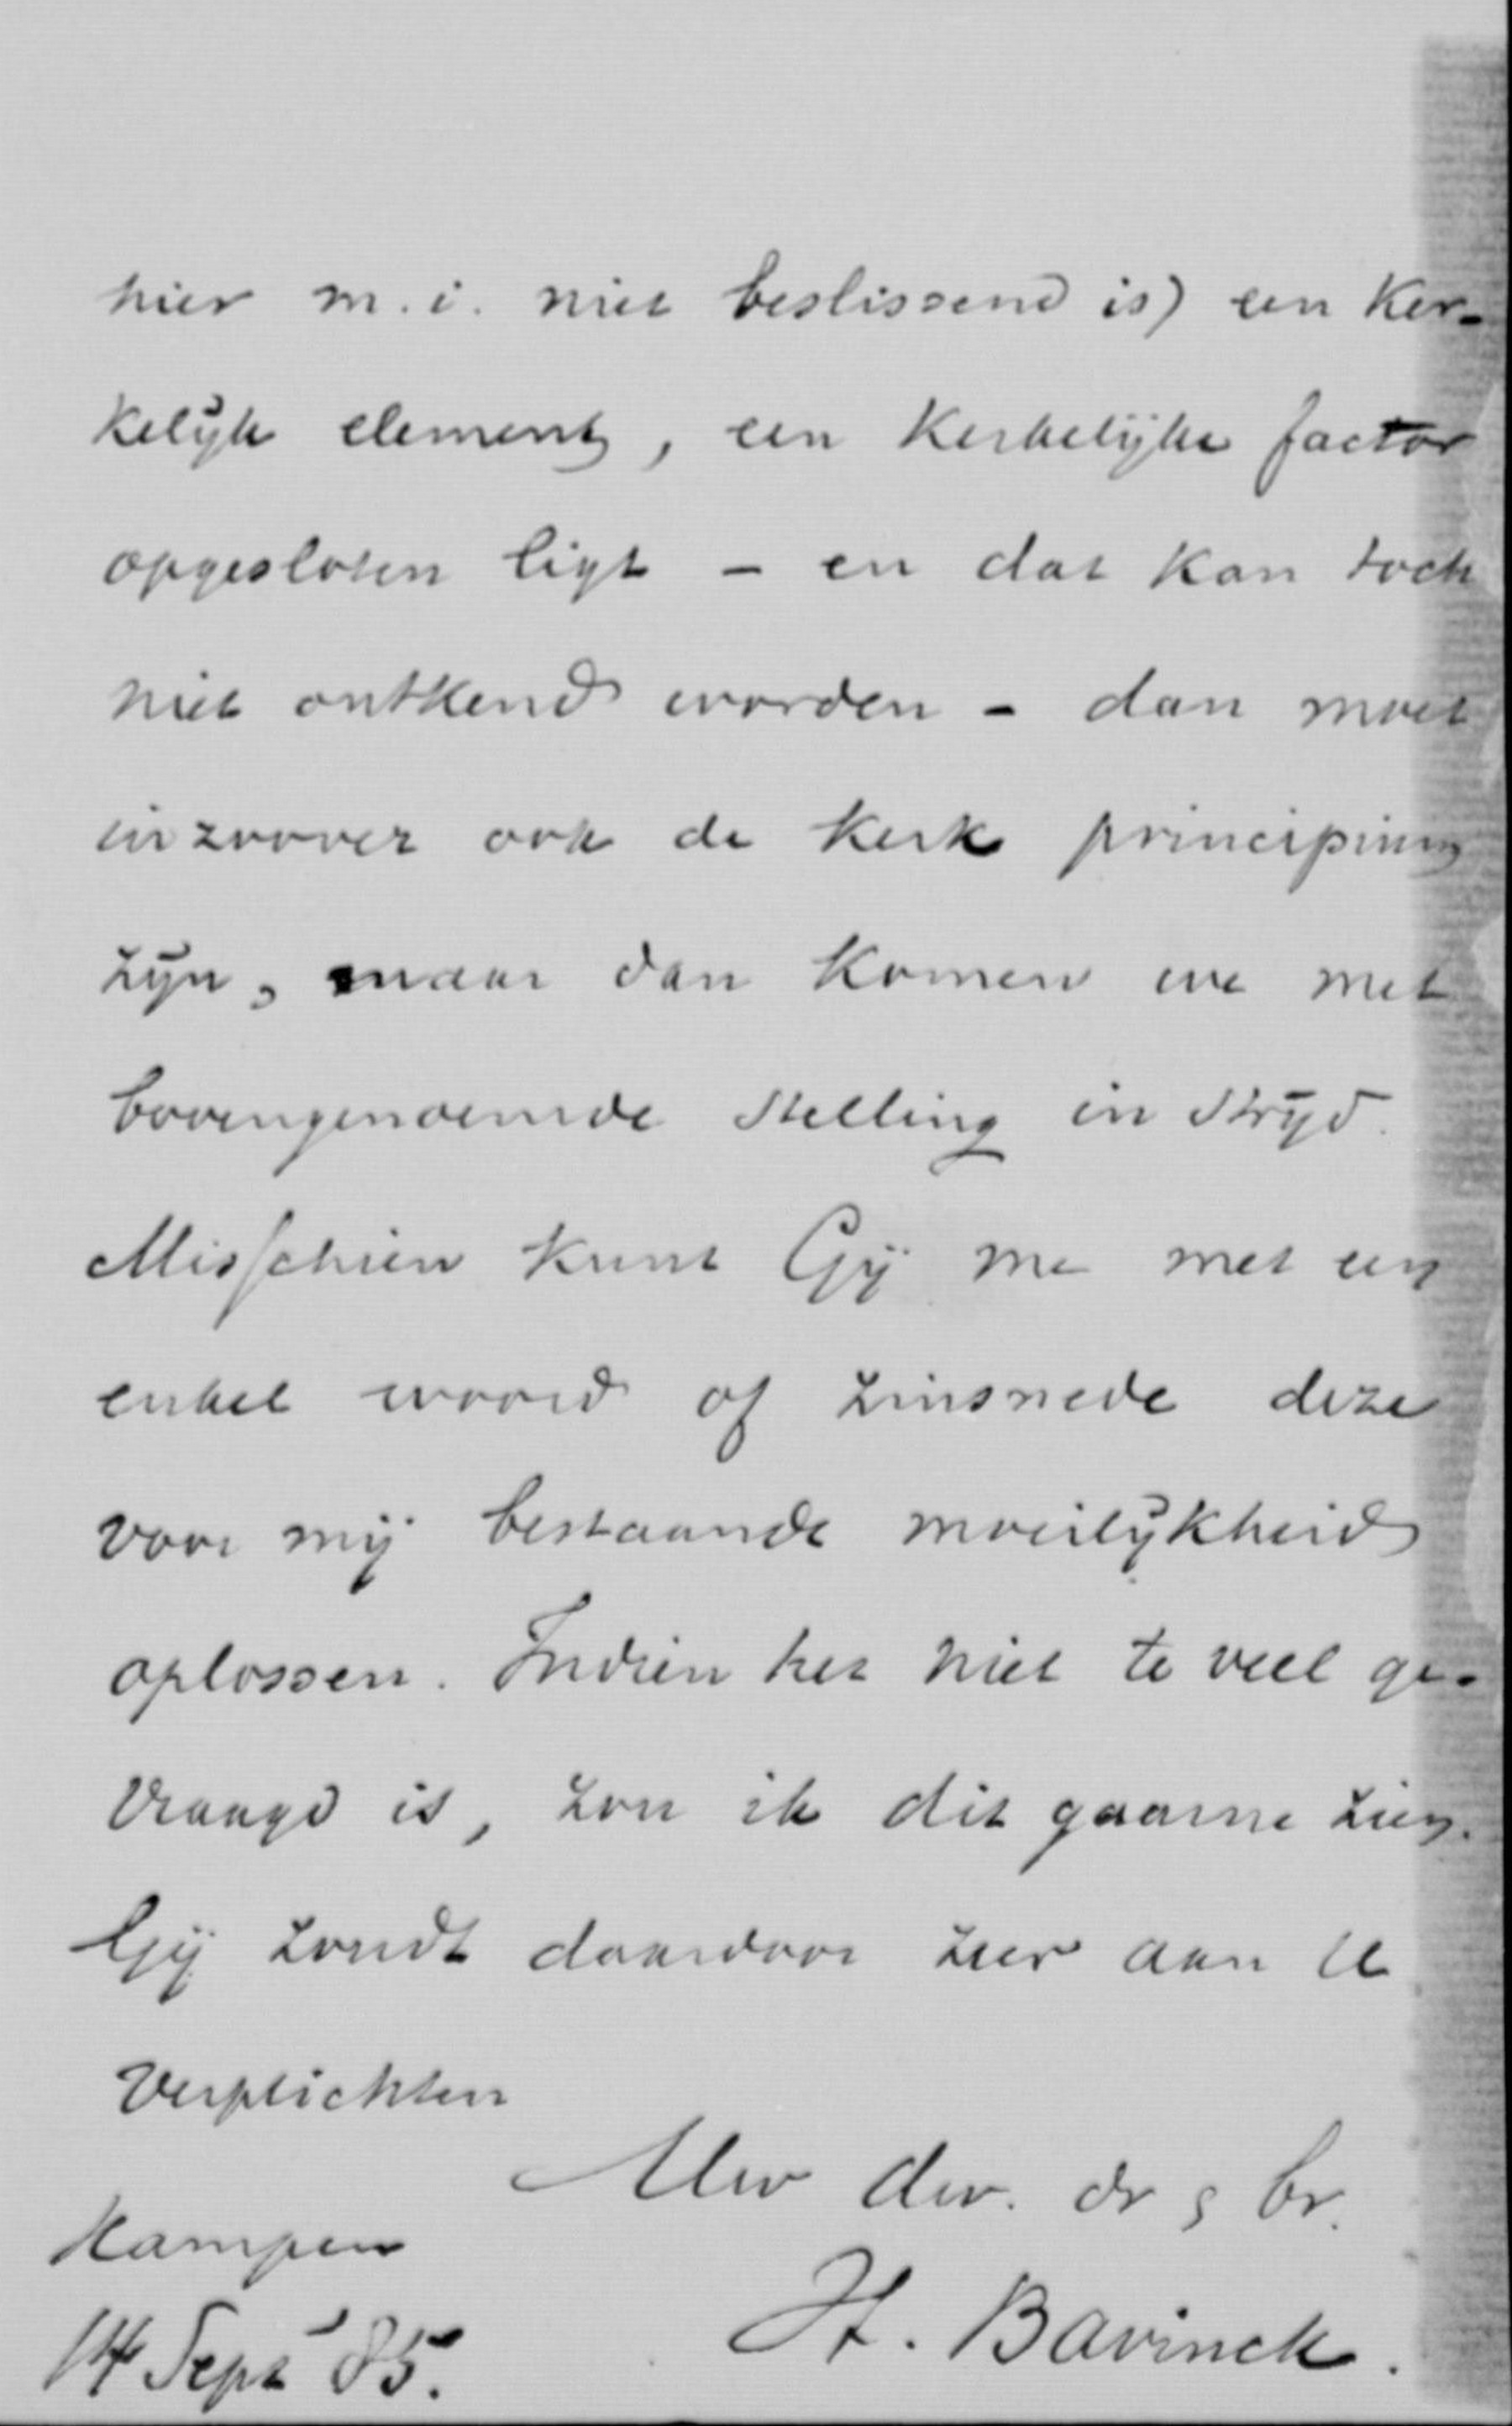 hier m. i. niet beslissend is) een ker-
kelijk element, een kerkelijke factor
opgesloten ligt – en dat kan toch
niet ontkend worden – dan moet
inzoover ook de kerk principium
zijn, maar dan komen we met
bovengenoemde stelling in strijd.
Misschien kunt Gij me met een
enkel woord of zinsnede deze
voor mij bestaande moeilijkheid
oplossen. Indien het niet te veel ge-
vraagd is, zou ik dit gaarne zien.
Gij zoudt daardoor zeer aan U
verplichten
Uw dw. dr & br.
Kampen
H. Bavinck.
14 Sept '85.